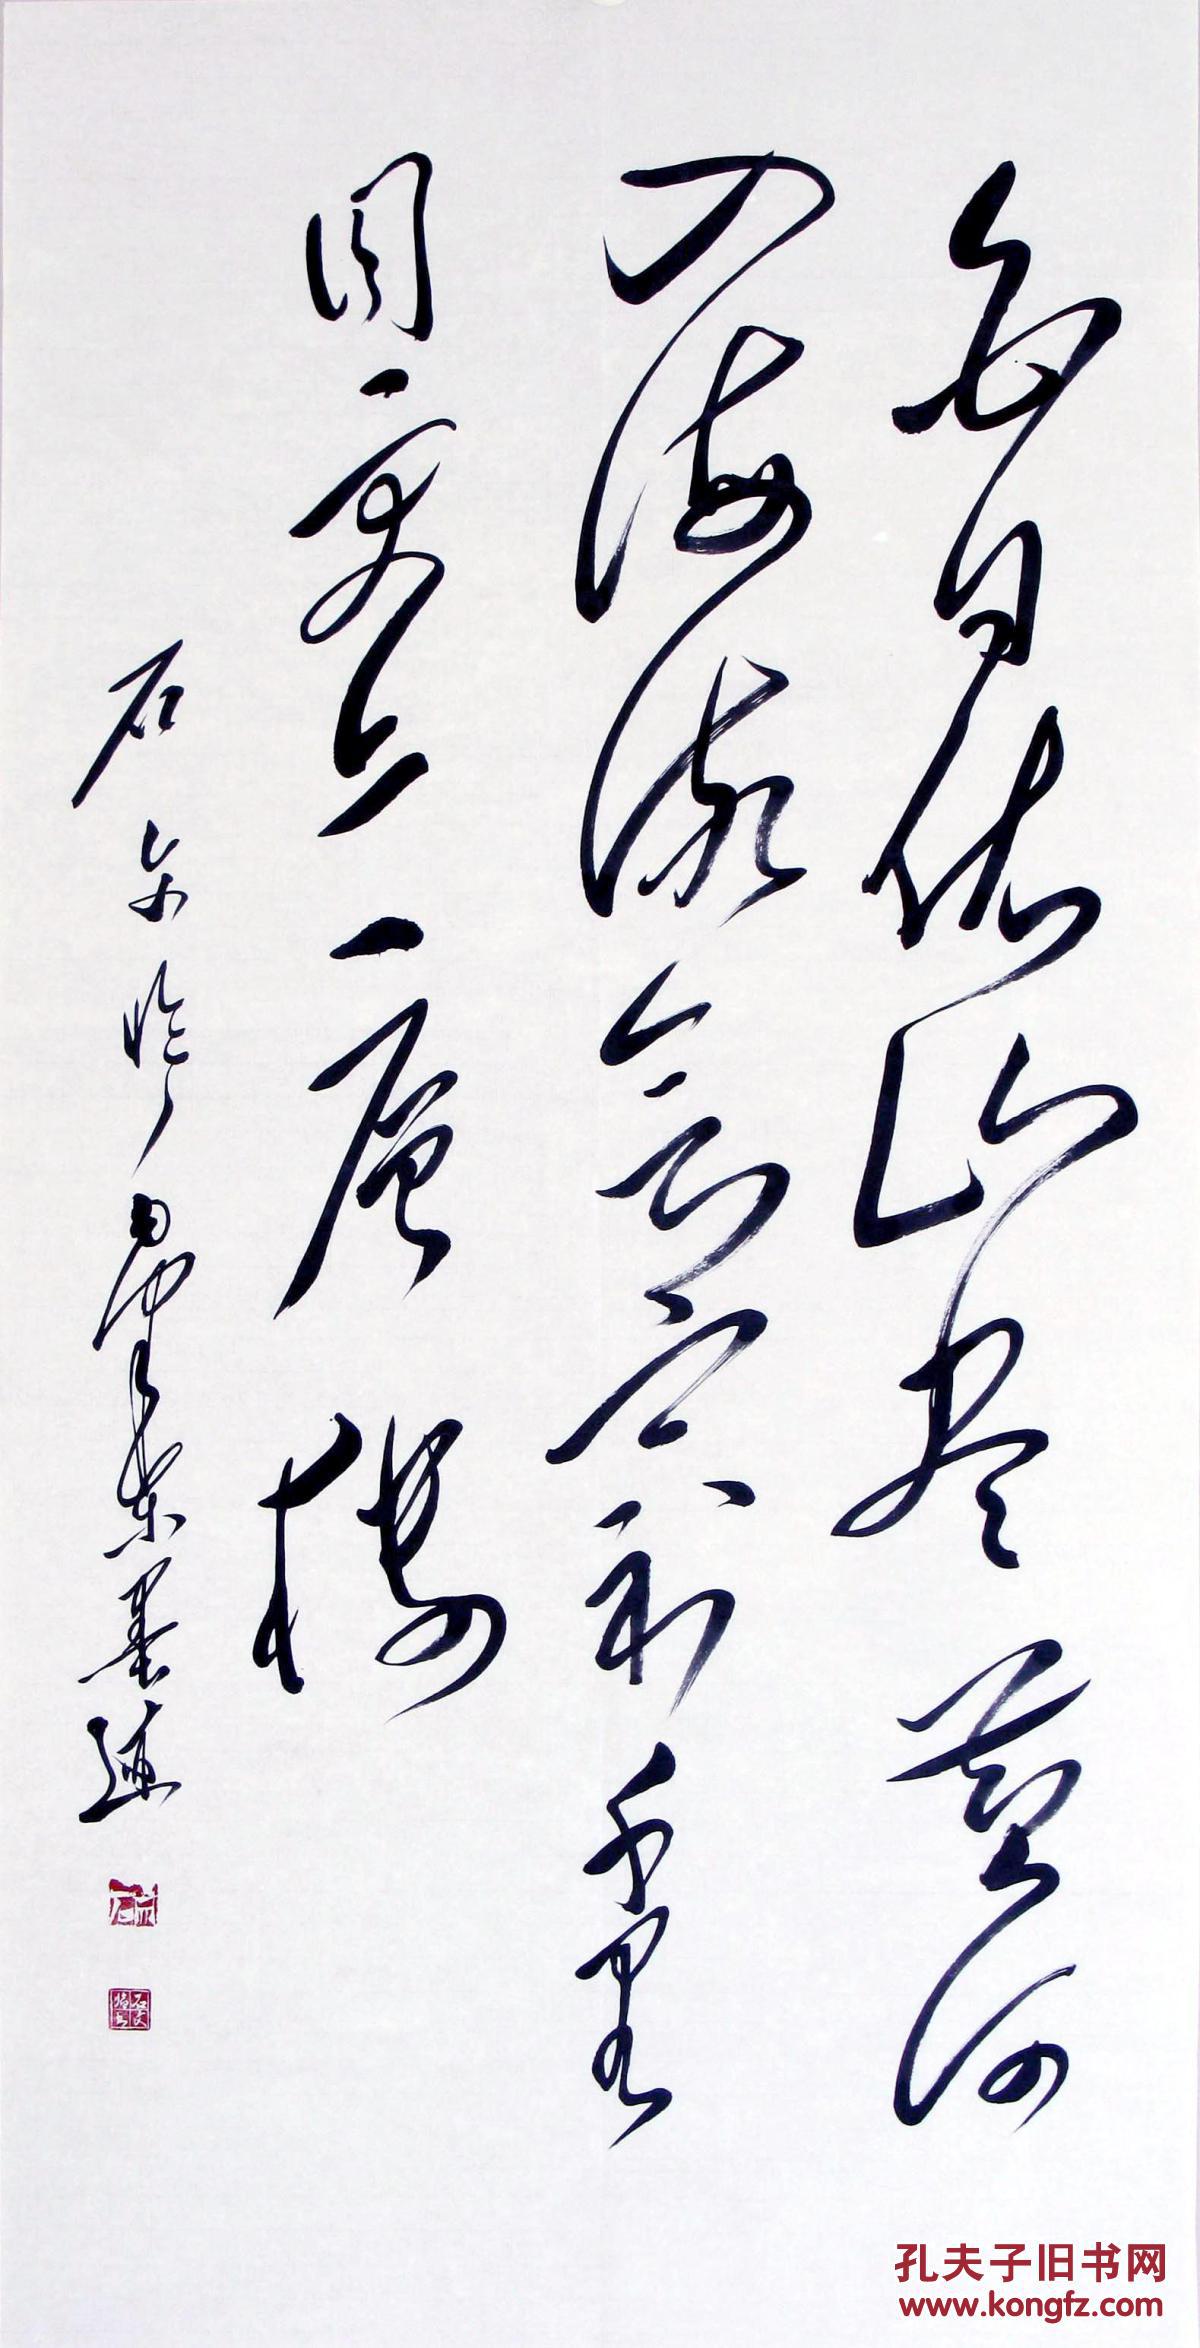 白日依山尽黄河
入海流欲穷千里
目更上一层楼
石文临毛泽东墨迹
孔夫子旧书网
www.kongfz.com